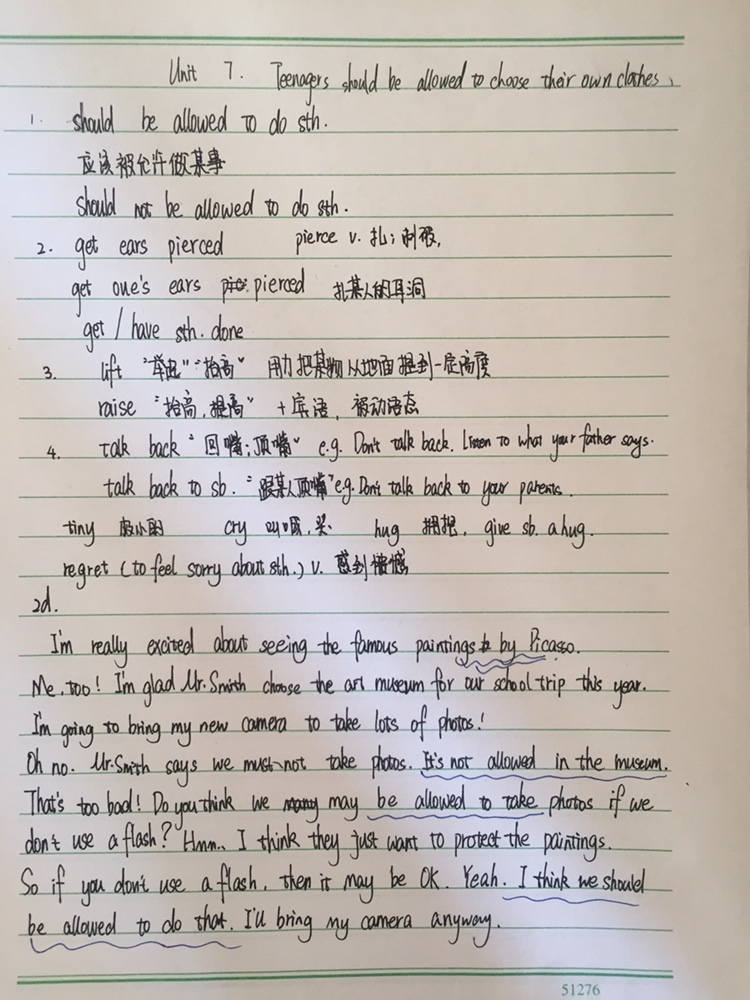 Unit 7. Teenagers should be allowed to choose their own clothes.
1. should be allowed to do sth.
应该被允许做某事
should not be allowed to do sth.
2. get ears pierced pierce v. 扎；刺破，
get one's ears pierced 扎某人的耳洞
get / have sth. done
3. lift "举起" "抬高" 用力把某物从地面提到一定高度
raise "抬高，提高" + 宾语，被动语态
4. talk back "回嘴；顶嘴" e.g. Don't talk back. Listen to what your father says.
talk back to sb. "跟某人顶嘴" e.g. Don't talk back to your parents.
tiny 极小的 cry 叫喊，哭 hug 拥抱， give sb. a hug.
regret (to feel sorry about sth.) v. 感到遗憾
2d.
I'm really excited about seeing the famous paintings by Picasso.
Me, too! I'm glad Mr. Smith choose the art museum for our school trip this year.
I'm going to bring my new camera to take lots of photos!
Oh no. Mr. Smith says we must not take photos. It's not allowed in the museum.
That's too bad! Do you think we may be allowed to take photos if we
don't use a flash? Hmm.. I think they just want to protect the paintings.
So if you don't use a flash, then it may be OK. Yeah. I think we should
be allowed to do that. I'll bring my camera anyway.
51276